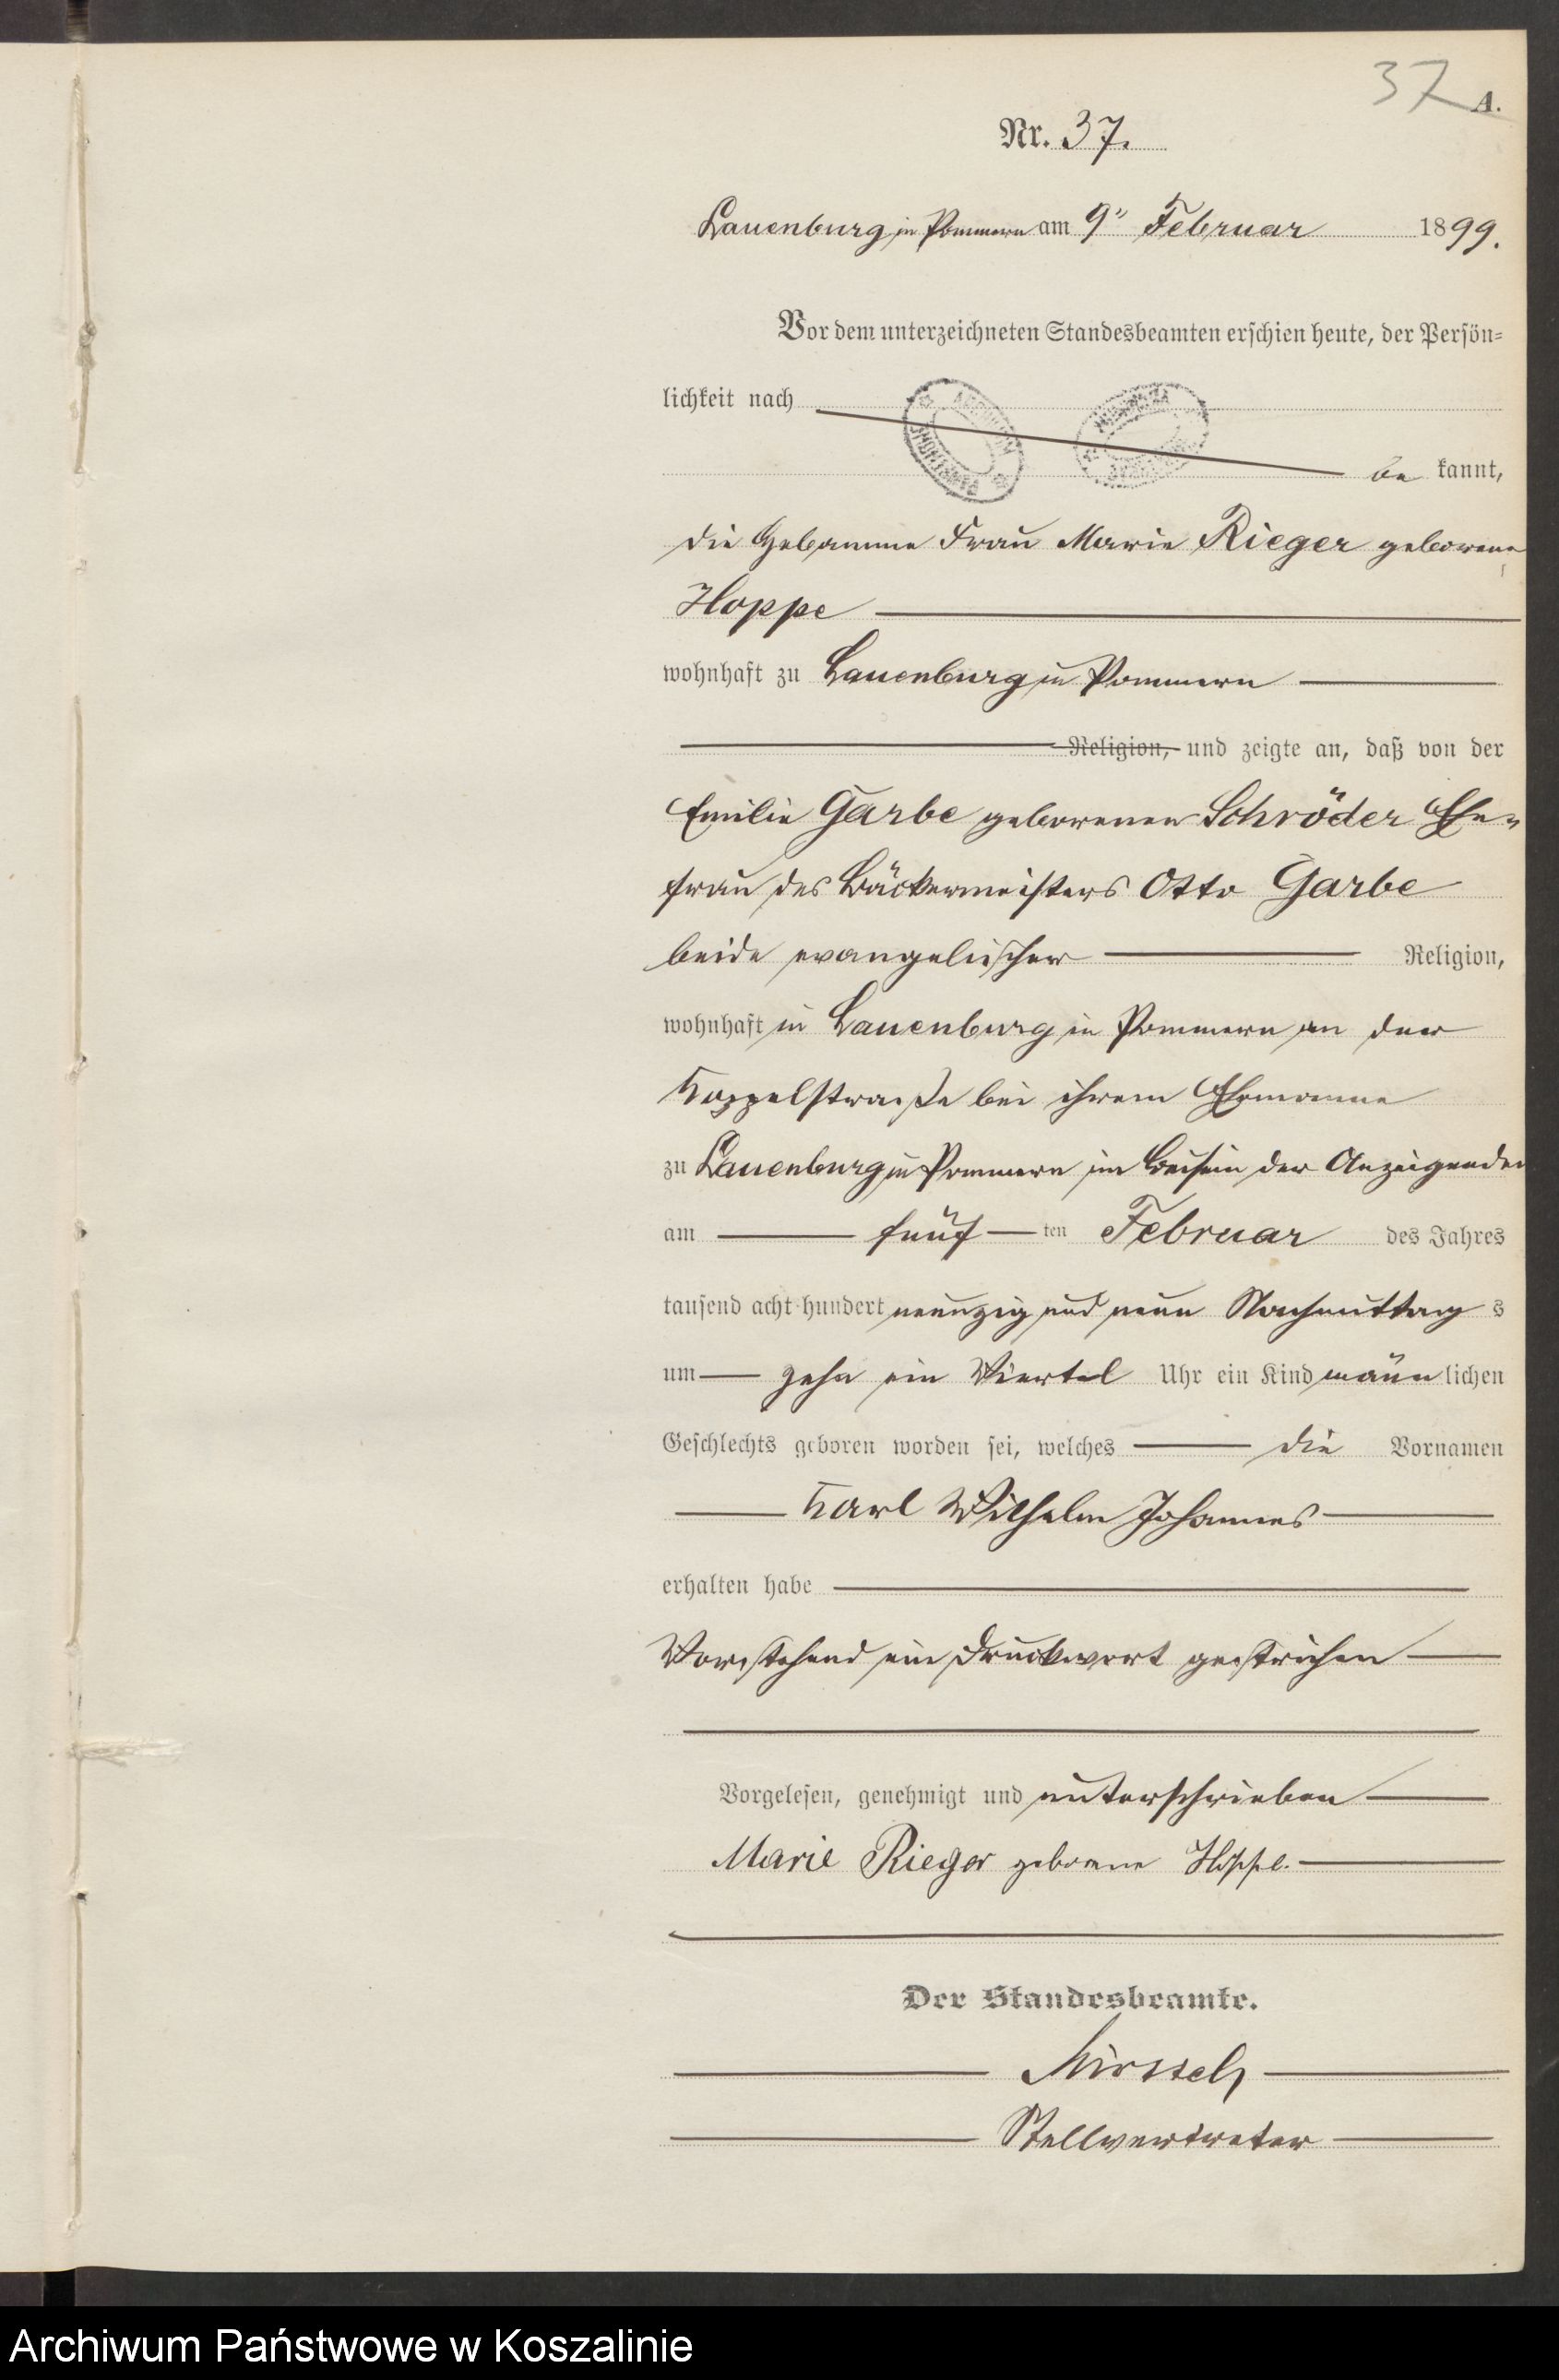 37
A.
Nr. 37.
Lauenburg in Pommern am 9ⁿ Februar 1899.
Vor dem unterzeichneten Standesbeamten erschien heute, der Persön-
lichkeit nach
be kannt,
die Hebamme Frau Marie Rieger geborene
Hoppe
wohnhaft zu Lauenburg in Pommern
Religion, und zeigte an, daß von der
Emilie Garbe geborenen Schröder Ehe-
frau des Bäckermeisters Otto Garbe
beide evangelischer Religion,
wohnhaft in Lauenburg in Pommern an der
Koppelstraße bei ihrem Ehemanne
zu Lauenburg in Pommern im Beisein der Anzeigenden
am fünf ten Februar des Jahres
tausend acht hundert neunzig und neun Nachmittag s
um zehn ein Viertel Uhr ein Kind männ lichen
Geschlechts geboren worden sei, welches die Vornamen
Karl Wilhelm Johannes
erhalten habe
Vorstehend ein Druckwort gestrichen
Vorgelesen, genehmigt und unterschrieben
Marie Rieger geborene Hoppe.
Der Standesbeamte.
Stellvertreter
Archiwum Państwowe w Koszalinie